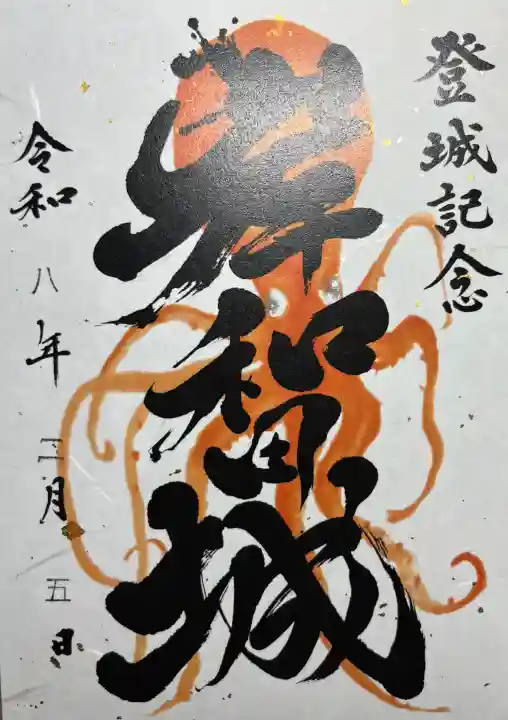 登城記念
岸和田城
令和八年三月五日